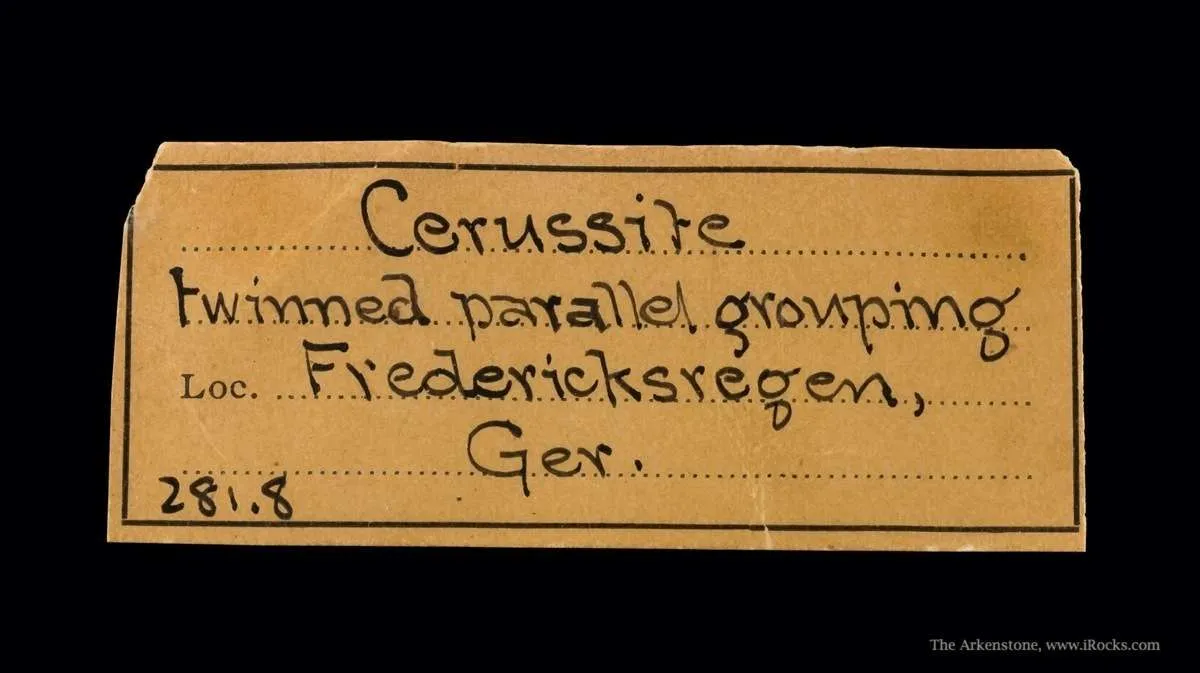 Cerussite
twinned parallel grouping
Loc. Fredericksregen,
Ger.
281.8
The Arkenstone, www.iRocks.com